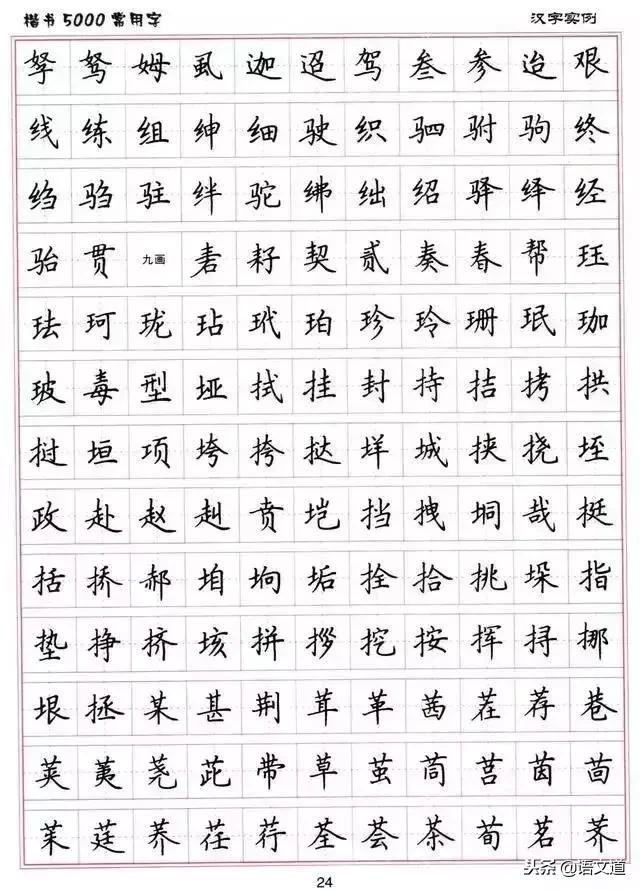 楷书5000常用字 汉字实例
孥 驽 姆 虱 迦 迢 驾 叁 参 迨 艰
线 练 组 绅 细 驶 织 驷 驸 驹 终
绉 驺 驻 绊 驼 绋 绌 绍 驿 绎 经
骀 贯 九画 砉 耔 契 贰 奏 春 帮 珏
珐 珂 珑 玷 玳 珀 珍 玲 珊 珉 珈
玻 毒 型 垭 拭 挂 封 持 拮 拷 拱
挝 垣 项 垮 挎 挞 垟 城 挟 挠 垤
政 赴 赵 赳 贲 垲 挡 拽 垌 哉 挺
括 挢 郝 垍 垧 垢 拴 拾 挑 垛 指
垫 挣 挤 垓 拼 拶 挖 按 挥 挦 挪
垠 拯 某 甚 荆 茸 革 茜 茬 荐 巷
荚 荑 荛 茈 带 草 茧 茼 莒 茵 茴
茱 莛 荞 荏 荇 荃 荟 茶 荀 茗 荠
24
头条@语文道